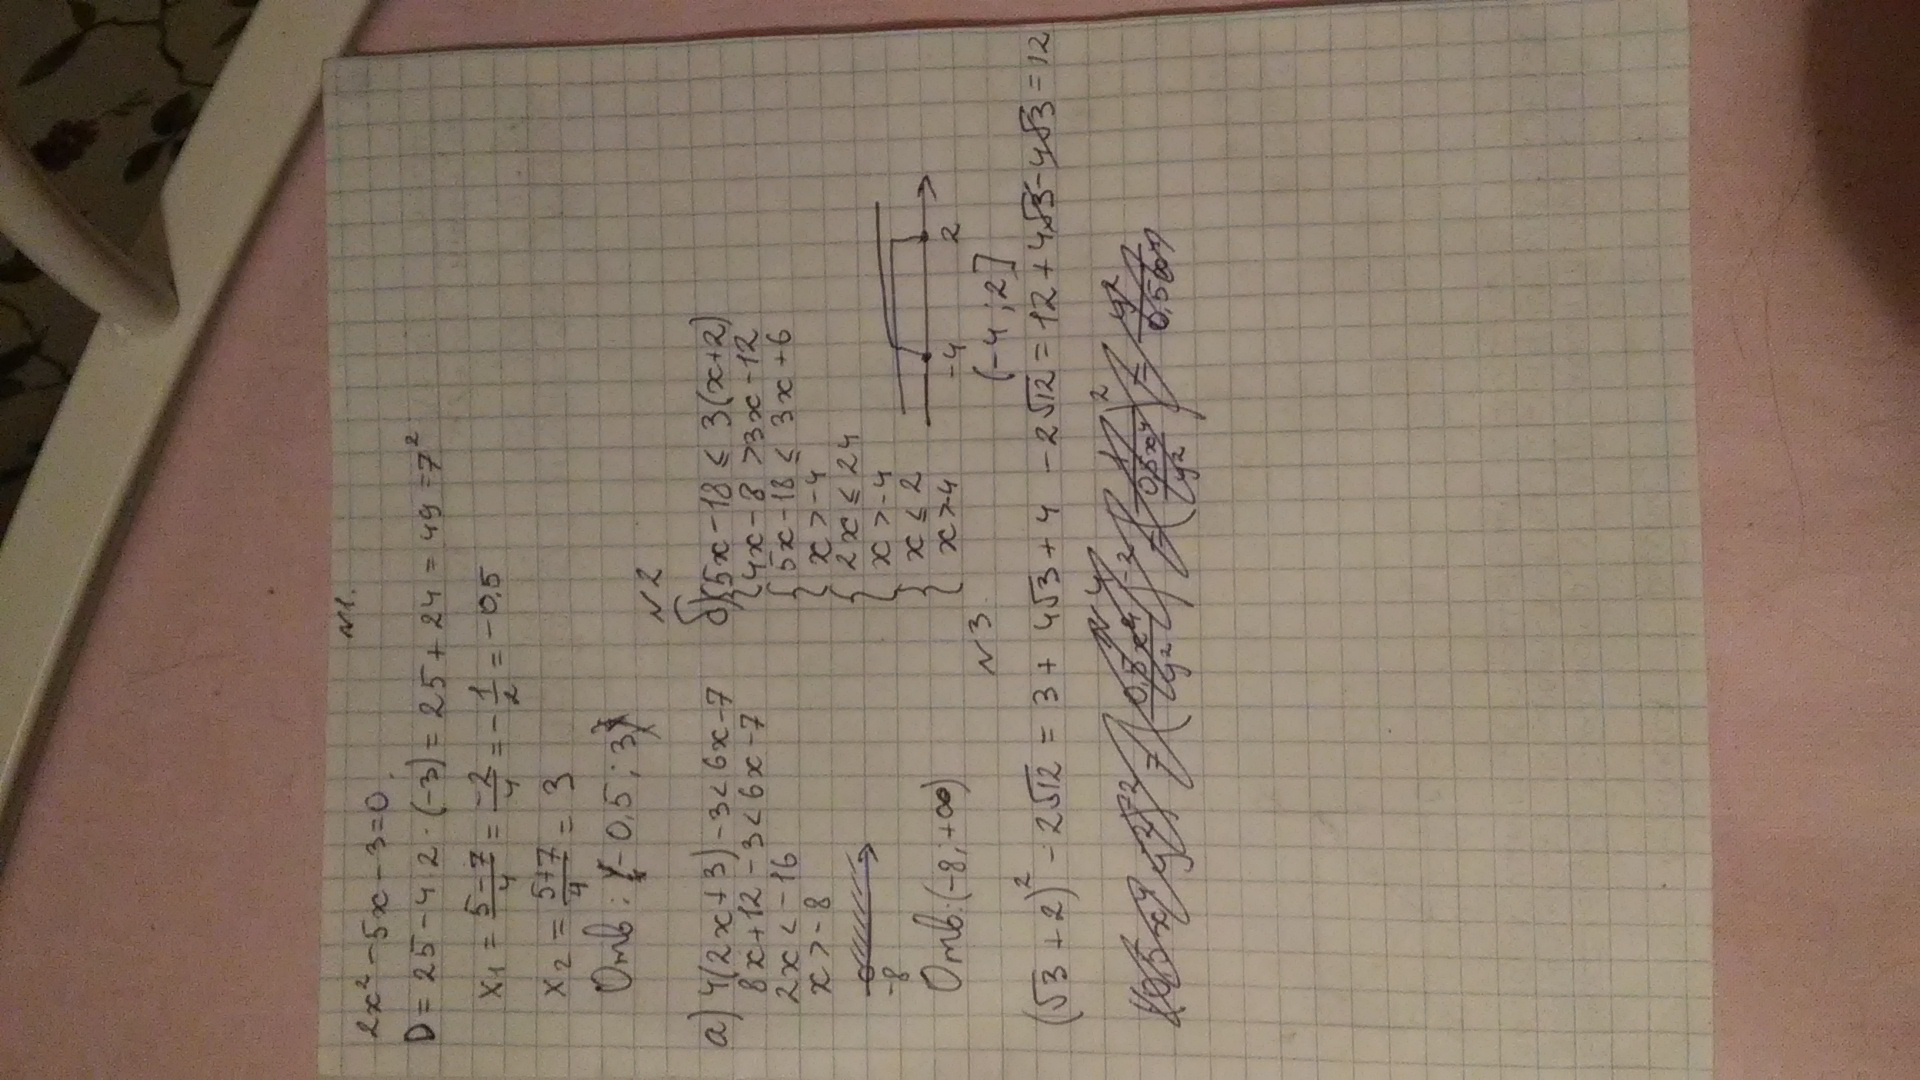 N1.
2x² - 5x - 3 = 0.
D = 25 - 4·2·(-3) = 25 + 24 = 49 = 7²
x₁ = (5-7)/4 = -2/4 = -1/2 = -0,5
x₂ = (5+7)/4 = 3
Отв: -0,5; 3
N2
а) 4(2x+3) - 3 < 6x - 7
8x + 12 - 3 < 6x - 7
2x < -16
x > -8
-8
Отв: (-8; +∞)
б) { 5x - 18 ≤ 3(x+2)
{ 4x - 8 > 3x - 12
{ 5x - 18 ≤ 3x + 6
x > -4
{ 2x ≤ 24
x > -4
{ x ≤ 2
x > -4
-4 2
(-4; 2]
N3
(√3 + 2)² - 2√12 = 3 + 4√3 + 4 - 2√12 = 12 + 4√3 - 4√3 = 12